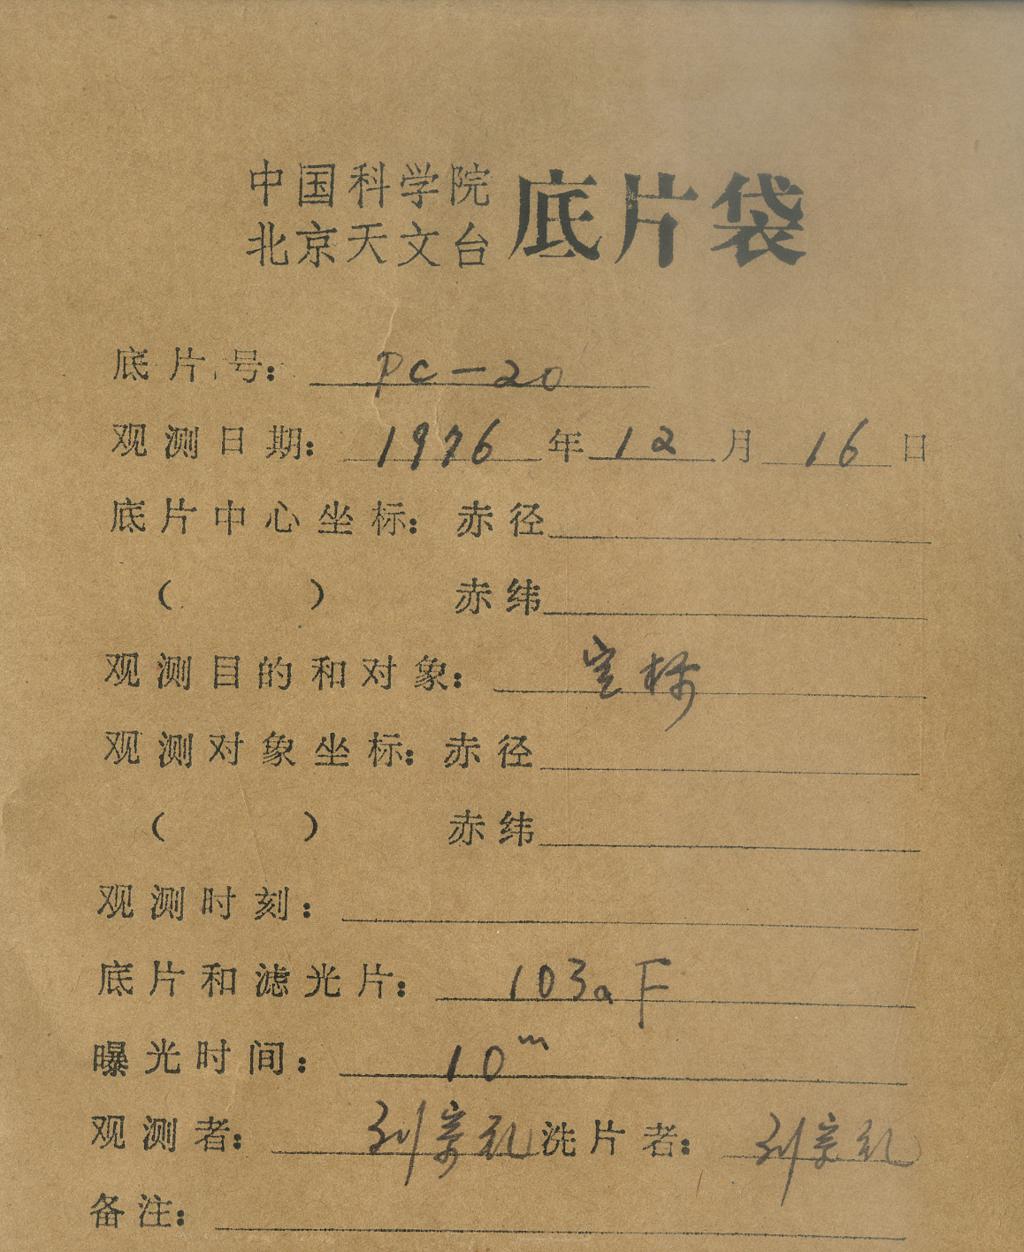 中国科学院
北京天文台
底片袋
底片号: PC-20
观测日期: 1976年12月16日
底片中心坐标: 赤径
( ) 赤纬
观测目的和对象: 定标
观测对象坐标: 赤径
( ) 赤纬
观测时刻:
底片和滤光片: 103a F
曝光时间: 10m
观测者: 刘宗礼 洗片者: 刘宗礼
备注: